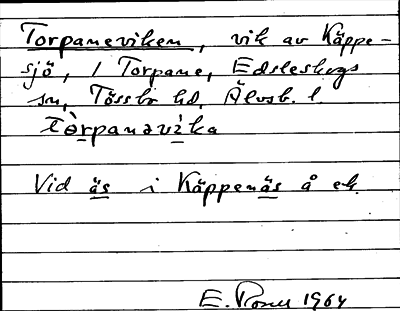 Torpaneviken, vik av Käppe-
sjö, i Torpane, Edsleskogs
sn, Tössbo hd, Älvsb. l.
tòrpanəvìka
Vid äs i Käppenäs å ek.
E. Rosell 1964